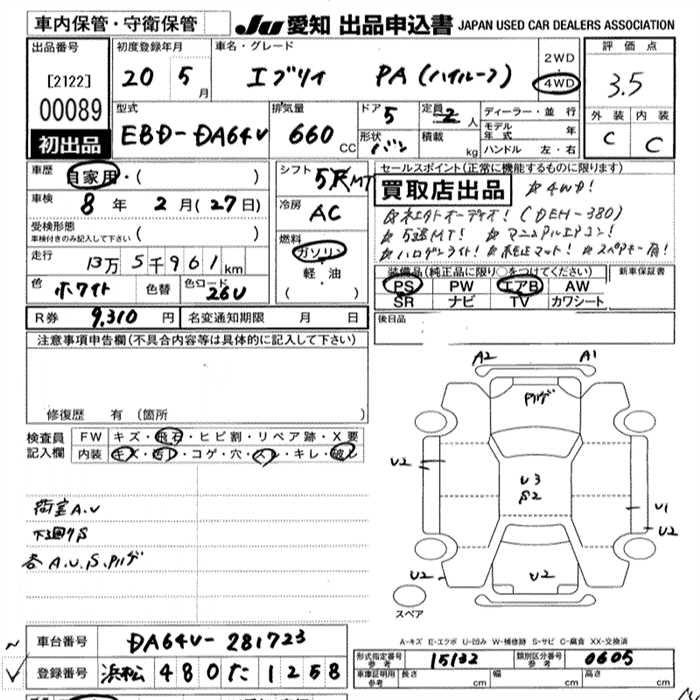 車内保管・守衛保管
JU 愛知 出品申込書 JAPAN USED CAR DEALERS ASSOCIATION
出品番号
[2122]
00089
初出品
初度登録年月
20 5月
車名・グレード
エブリイ PA (ハイルーフ)
2WD
4WD
評価点
3.5
外装 内装
C C
型式
EBD-DA64V
排気量
660 CC
ドア 5
形状 バン
定員 2人
積載 kg
ディーラー・並行
モデル年式 年
ハンドル 左・右
車歴 自家用・( )
車検 8年 2月(27日)
受検形態
車検付きのみ記入して下さい ( )
走行 13万5千961km
色 ホワイト 色替 色コード 26U
シフト 5F MT
冷房 AC
燃料
ガソリン
軽・油
( )
セールスポイント(正常に機能するものに限ります)
買取店出品 ☆4WD!
☆社外オーディオ!(DEH-380)
☆5速MT! ☆マニュアルエアコン!
☆ハロゲンライト! ☆純正マット! ☆スペアキー有!
装備品(純正品に限り○をつけてください) 新車保証書
PS PW エアB AW
SR ナビ TV カワシート
後日品
R券 9,310円 名変通知期限 月 日
注意事項申告欄(不具合内容等は具体的に記入して下さい)
修復歴 有 (箇所 )
検査員記入欄
FW キズ・飛石・ヒビ割・リペア跡・X要
内装 キズ・汚れ・コゲ・穴・スレ・キレ・破レ
荷室A.U
下回りS
各A.U.S.ハゲ
A2 A1
ハゲ
U2
U3
S2
U1
U2
U2 U2
スペア
A-キズ E-エクボ U-凹み W-補修跡 S-サビ C-腐食 XX-交換済
車台番号 DA64V-281723
登録番号 浜松 480 た 1258
形式指定番号 参考 15132 類別区分番号 参考 0605
車庫証明用 参考 長さ cm 幅 cm 高さ cm